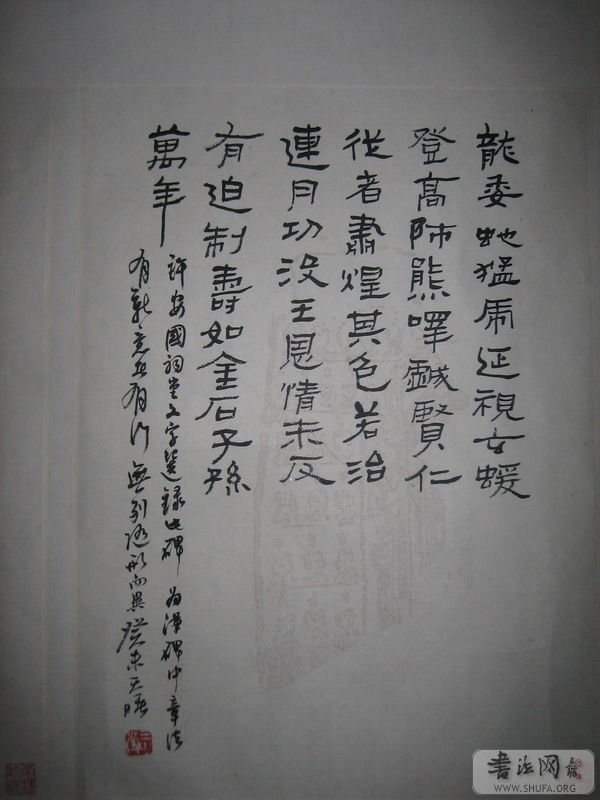 龍委虵猛虎延視玄蝯
登高陟熊嘷戲賢仁
從者肅煌其色若治
連月功没王恩情未反
有迫制壽如金石子孫
萬年
許安國祠堂文字選錄此碑為漢碑中章法
有新意也有行無列隨形而異癸未天
書法网
WWW.SHUFA.ORG